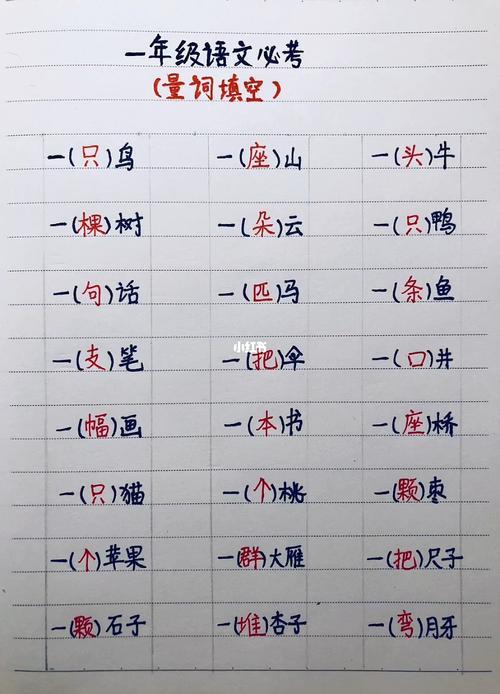 一年级语文必考
(量词填空)
一(只)鸟 一(座)山 一(头)牛
一(棵)树 一(朵)云 一(只)鸭
一(句)话 一(匹)马 一(条)鱼
小红书
一(支)笔 一(把)伞 一(口)井
一(幅)画 一(本)书 一(座)桥
一(只)猫 一(个)桃 一(颗)枣
一(个)苹果 一(群)大雁 一(把)尺子
一(颗)石子 一(堆)杏子 一(弯)月牙